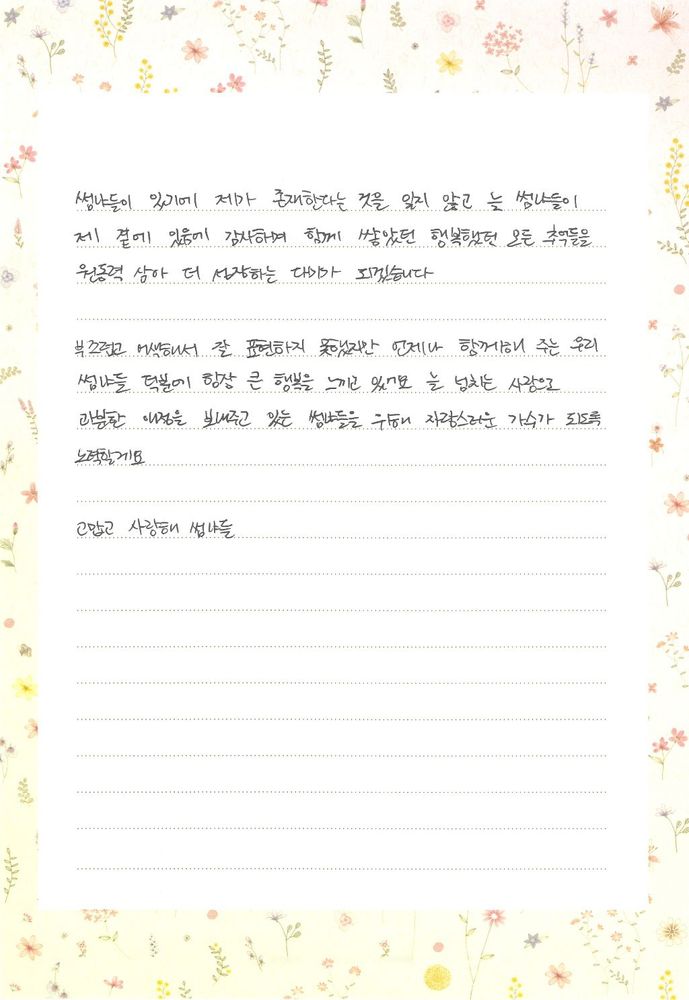 썸냐들이 있기에 제가 존재한다는 것을 잊지 않고 늘 썸냐들이
제 곁에 있음에 감사하며 함께 쌓았던 행복했던 모든 추억들을
원동력 삼아 더 성장하는 대기가 되겠습니다
부끄럽고 어색해서 잘 표현하지 못했지만 언제나 함께해 주는 우리
썸냐들 덕분에 항상 큰 행복을 느끼고 있어요 늘 넘치는 사랑으로
과분한 애정을 보내주고 있는 썸냐들을 위해 자랑스러운 가수가 되도록
노력할게요
고맙고 사랑해 썸냐들